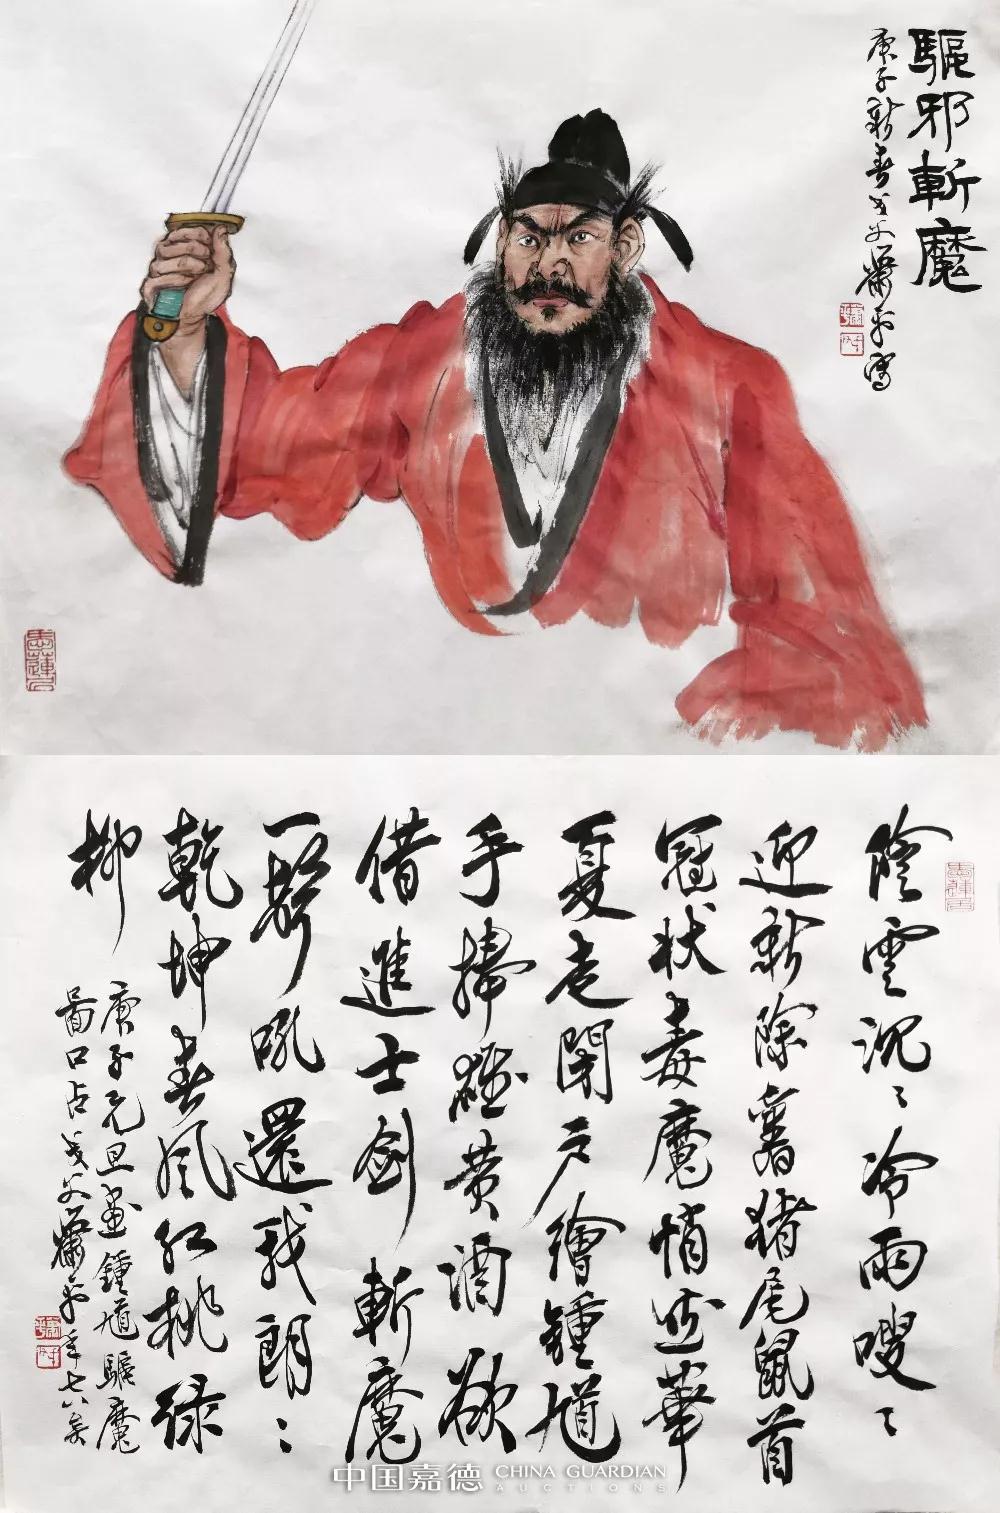 驅邪斬魔
庚子新春
陰雲沉〻冷雨嗖〻
迎新除舊猪尾鼠首
冠状毒魔悄逆華
夏走閉户繪鍾馗
手捧雄黄酒欲
借進士劍斬魔
一聲吼還我朗〻
乾坤春風红桃绿
柳
庚子元旦畫鍾馗驅魔
圖口占
年七八矣
中国嘉德 CHINA GUARDIAN
AUCTIONS